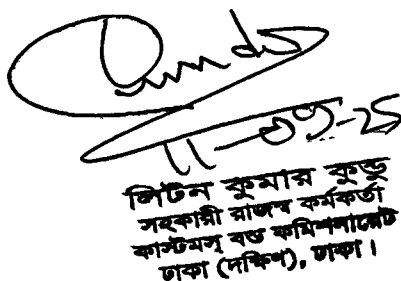 ১১-০৭-২৫
লিটন কুমার কুন্ডু
সহকারী রাজস্ব কর্মকর্তা
কাস্টমস্ বন্ড কমিশনারেট
ঢাকা (দক্ষিণ), ঢাকা।